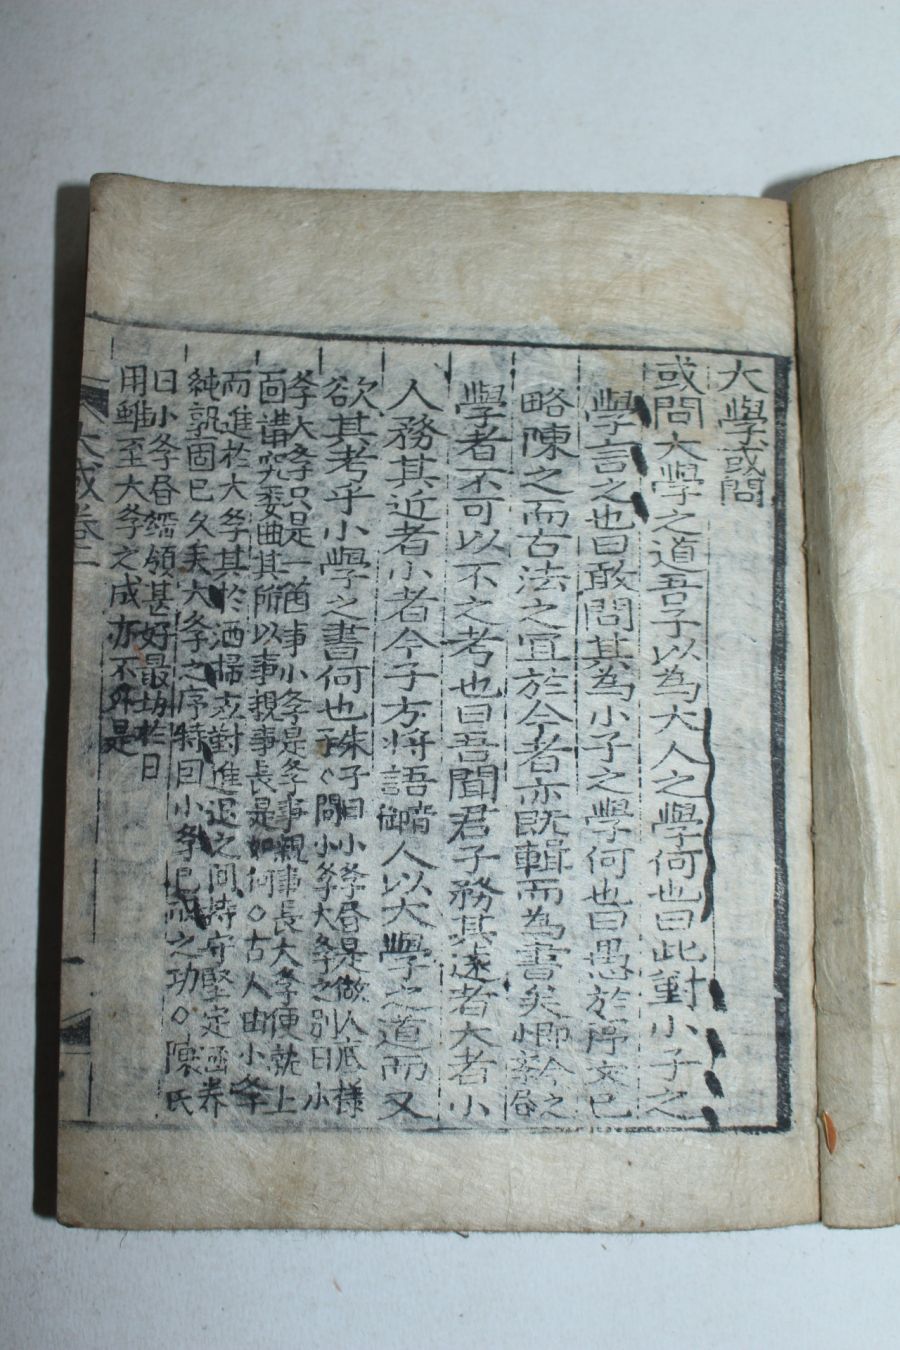 大學或問
或問大學之道吾子以為大人之學何也曰此對小子之
學言之也曰敢問其為小子之學何也曰愚於序文已
略陳之而古法之宜於今者亦既輯而為書矣
學者不可以不之考也曰吾聞君子務其遠者大者小
人務其近者小者今子方將語人以大學之道而又
欲其考乎小學之書何也
朱子曰小斈者是做人底樣
子○問小斈大斈之別曰小
斈大斈只是一箇事小斈是斈事親事長大斈便就上
面講究委曲其所以事親事長是如何○古人由小斈
而進於大斈其於洒掃应對進退之间持守堅定涵养
純孰固已久矣大斈之序特因小斈已成之功○陳氏
曰小斈甚好最切於日
用雖至大斈之成亦不外是